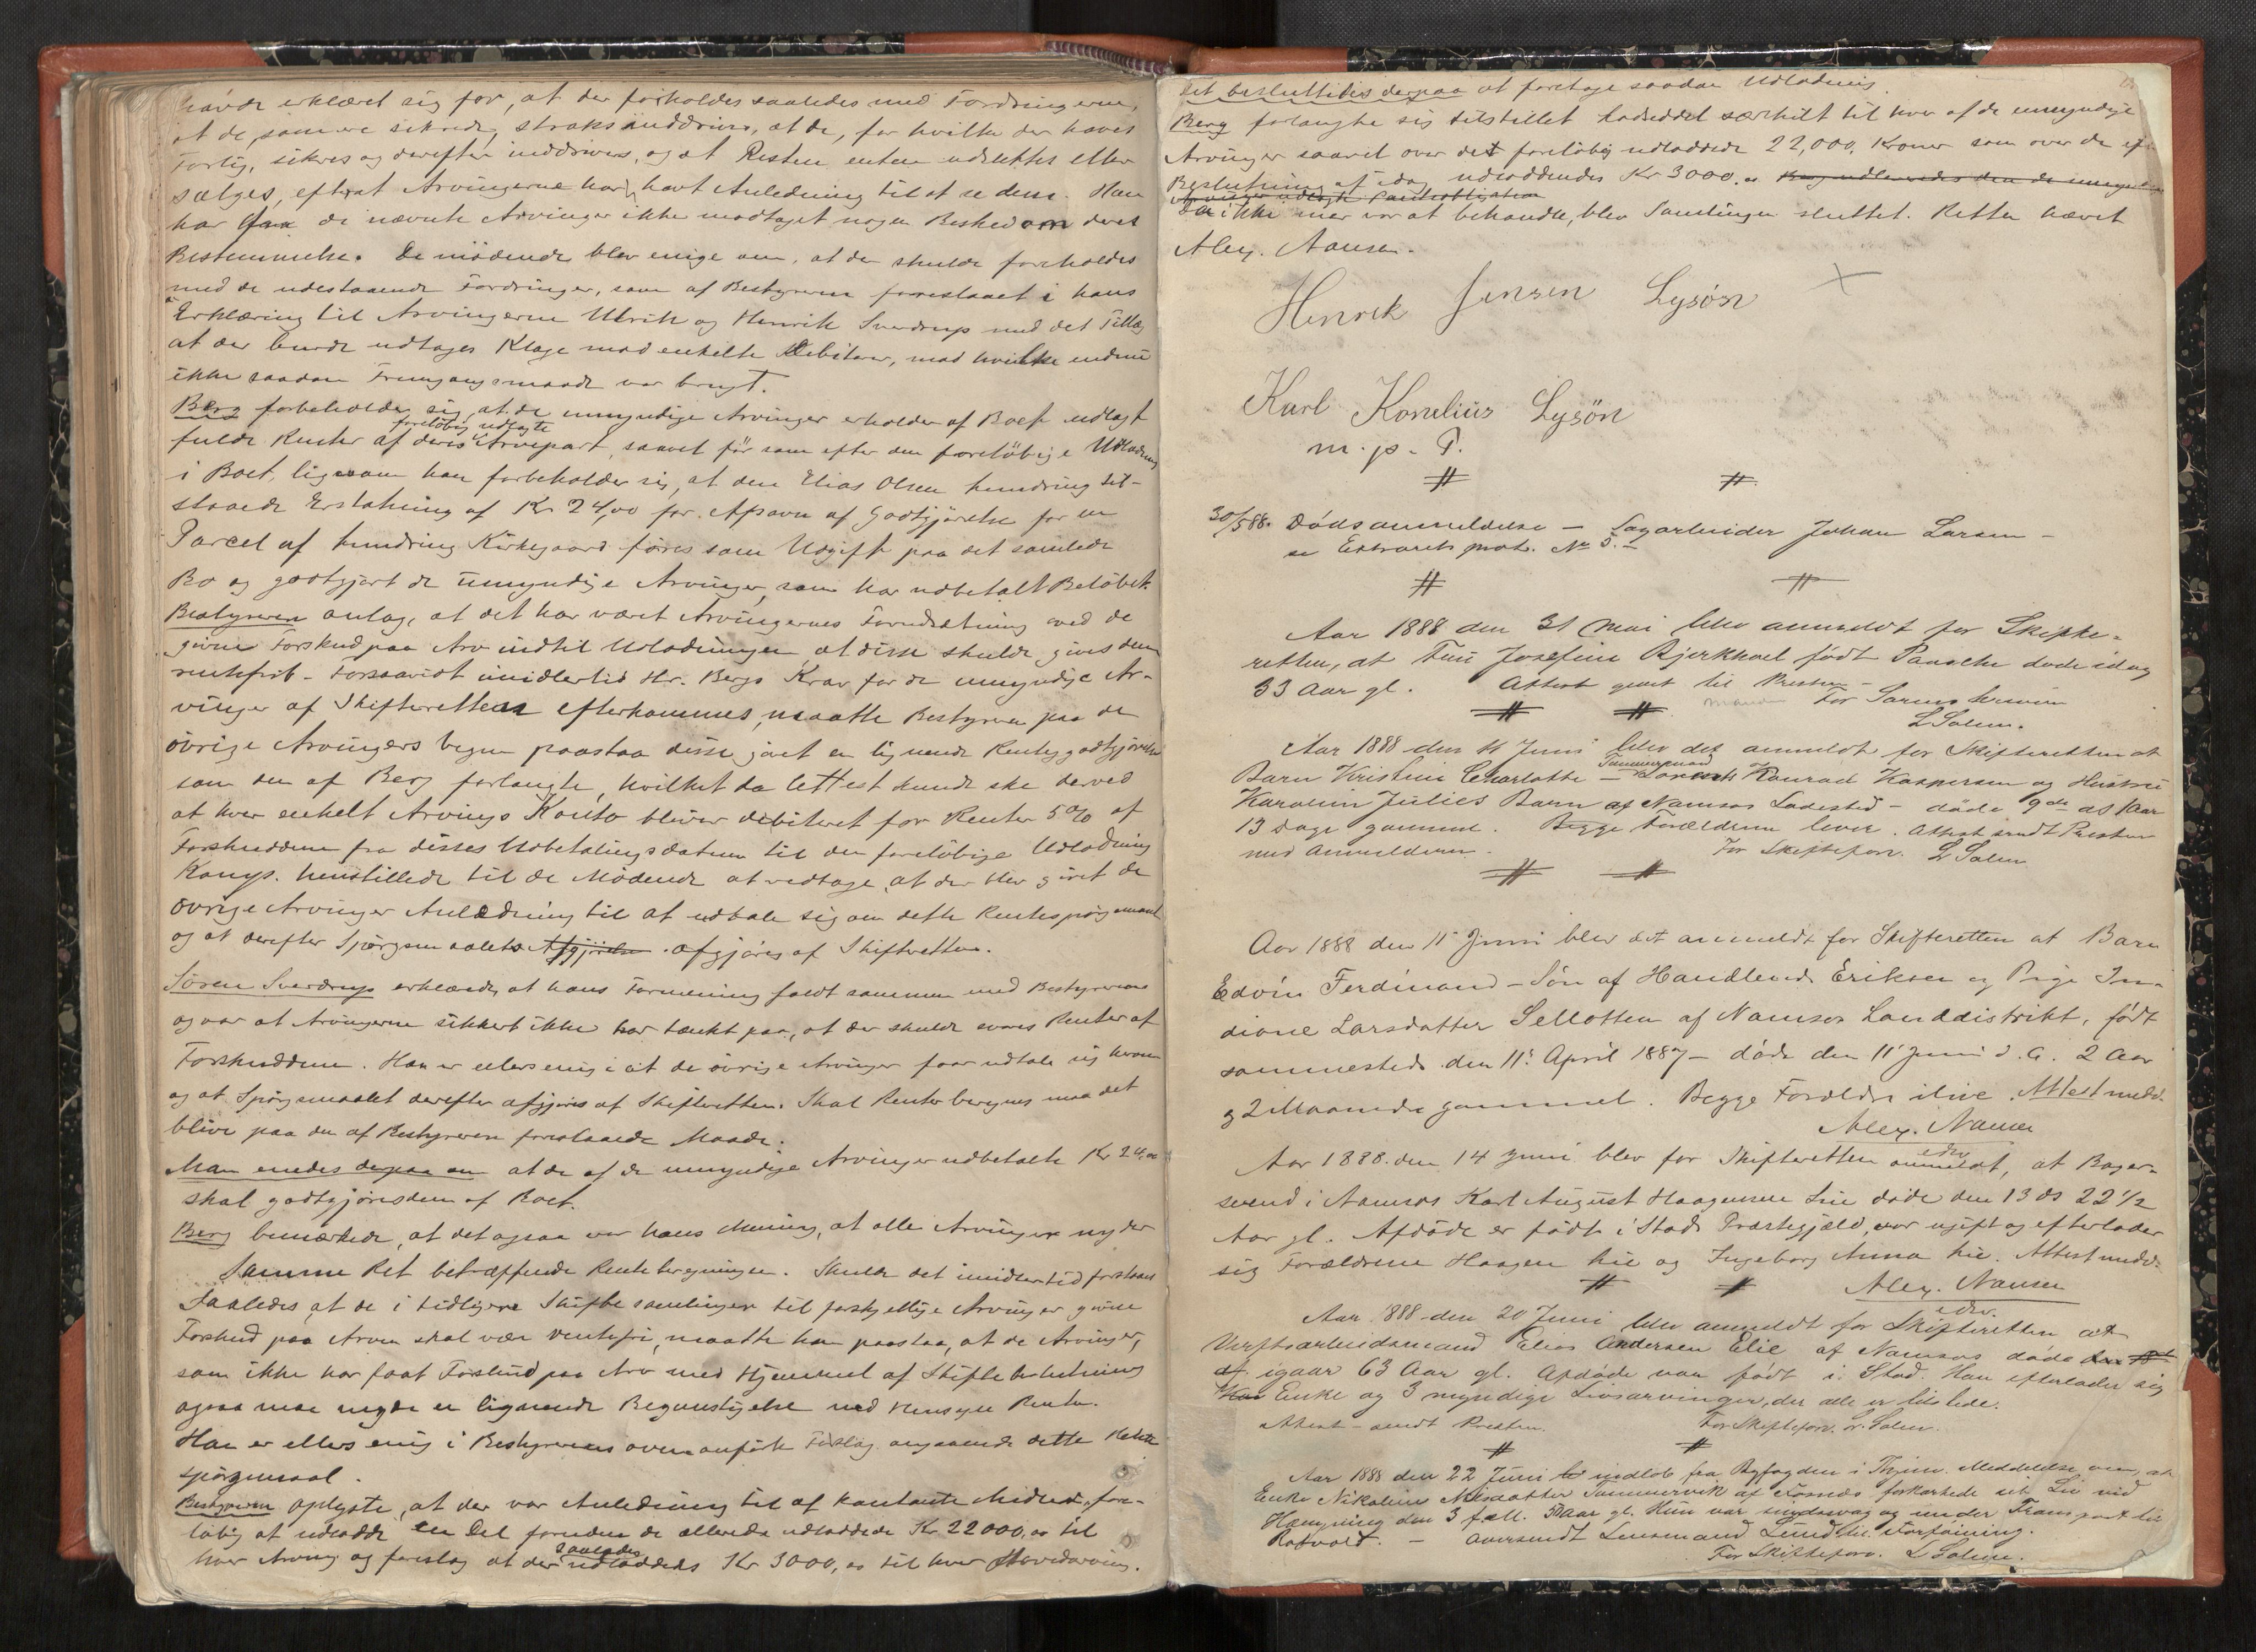 havde erklæret sig for, at der forholdes saaledes med Fordringerne,
at de, som ere sikrede, straks inddrives, at de, for hvilke der haves
Forlig, sikres og derefter inddrives, og at Resten enten udslettes eller
sælges, efterat Arvingerne har havt Anledning til at se dem. Han
har fra de nævnte Arvinger ikke modtaget nogen Besked om deres
Bestemmelse. De mødende blev enige om, at der skulde forholdes
med de udestaaende Fordringer, som af Bestyreren foreslaaet i hans
Erklæring til Arvingerne Ulrik og Henrik Sverdrup med det Tillæg
at der burde udtages Klage mod enkelte Debitorer, mod hvilke endnu
ikke saadan Fremgangsmaade var brugt.
Berg forbeholder sig, at de umyndige Arvinger erholder af Boet udlagt
foreløbig udlagte
fulde Renter af deres Arvepart, saavel før som efter den foreløbige Udlodning
i Boet, ligesom han forbeholder sig, at den Elias Olsen Hundring til-
staaede Erstatning af Kr. 24,00 for Afsavn af Godtgjørelse for en
Parcel af Hundring Kirkegaard føres som Udgift paa det samlede
Bo og godtgjort de umyndige Arvinger, som har udbetalt Beløbet.
Bestyreren antog, at det har været Arvingernes Forudsætning ved de
givne Forskud paa Arv indtil Udlodningen at disse skulde gives dem
rentefrit. Forsaavidt imidlertid Hr. Bergs Krav for de umyndige Ar-
vinger af Skifteretten efterkommes, maatte Bestyreren paa de
øvrige Arvingers vegne paastaa disse givet en lignende Rentegodtgjørelse
som den af Berg forlangte, hvilket da lettest kunde ske derved
at hver enkelt Arvings Konto bliver debiteret for Renter 5% af
Forskuddene fra disses Udbetalingsdatum til den foreløbige Udlodning
Konst. henstillede til de Mødende at vedtage, at der blev givet de
øvrige Arvinger Anledning til at udtale sig om dette Rentespørgsmaal
og at derefter Spørgsmaalets Afgjørelse afgjøres af Skifteretten.
Søren Sverdrup erklærede, at hans Formening faldt sammen med Bestyrerens
og var at Arvingerne sikkert ikke har tænkt paa, at der skulde svares Renter af
Forskuddene. Han er ellers enig i at de øvrige Arvinger faar udtale sig herom
og at Spørgsmaalet derefter afgjøres af Skifteretten. Skal Renter beregnes maa det
blive paa den af Bestyreren foreslaaede Maade.
Man enedes derpaa om at de af de umyndige Arvinger udbetalte Kr 24,00
skal godtgjøres dem af Boet.
Berg bemærkede, at det ogsaa var hans Mening, at alle Arvinger nyder
Samme Ret betræffende Renteberegningen. Skulde det imidlertid forstaaes
saaledes, at de i tidligere Skiftesamlinger til forskjellige Arvinger givne
Forskud paa Arven skal være rentefri, maatte han paastaa, at de Arvinger,
som ikke har faat Forskud paa Arv med Hjemmel af Skiftebeslutning
ogsaa maa nyde en lignende Begunstigelse med Hensyn Renter.
Han er ellers enig i Bestyrerens ovenanførte Forslag angaaende dette Rente
spørgsmaal.
Bestyreren oplyste, at der var Anledning til af kontante Midler fore-
løbig at udlodde en Del foruden de allerede udloddede Kr. 22000,00 til
saaledes
hver Arving og foreslog at der udloddedes Kr 3000,00 til hver Hovedarving.
Det besluttedes derpaa at foretage saadan Udlodning.
Berg forlangte sig tilstillet Lodseddel særskilt til hver af de umyndige
Arvinger saavel over det foreløbig udloddede 22,000, Kroner som over de ef
Beslutning af idag udloddendes Kr 3000.00 Berg udleveredes den de umyndige
Arvinger udlagte Panteobligation
Da ikke mer var at behandle, blev Samlingen sluttet. Retten hævet
Alex. Nansen.
Henrek Jensen Lysøn
Karl Konelius Lysøn
m. p. P.
30/5 88. Dødsanmeldelse – Sagarbeider Johan Larsen –
se Extraretsprot. No 5. –
Aar 1888 den 31 Mai blev anmeldt for Skifte-
retten, at Frue Josefine Bjerkhoel født Paasche døde idag
33 Aar gl. Attest givet til Presten –
For Sorenskriveren
L Salem.
Aar 1888 den 11 Juni blev det anmeldt for Skifteretten at
Tømmermand
Barn Kristine Charlotte – Konrad Kaspersen og Hustru
Karoline Julies Barn af Namsos Ladested – døde 9de ds 1 Aar
13 Dage gammel. Begge Forældrene lever. Attest sendt Presten
med Anmelderen. For Skifteforv. L Salem
Aar 1888 den 11 Juni blev det anmeldt for Skifteretten at Barn
Edvin Ferdinand – Søn af Handlende Eriksen og Pige In-
diane Larsdatter Sellotten af Namsos Landdistrikt, født
sammesteds den 11. April 1887 – døde den 11 Juni d. A. 2 Aar
og 2 Maaneder gammel. Begge Forældre ilive. Attest medd.
Alex. Nansen
Aar 1888. den 14 Juni blev for Skifteretten edsv. anmeldt, at Bager-
svend i Namsos Karl August Haagensen Lie døde den 13 ds 22 1/2
Aar gl. Afdøde er født i Stods Præstegjæld, var ugift og efterlader
sig Forældrene Haagen Lie og Ingeborg Anna Lie. Attest medd.
Alex. Nansen
edsv.
Aar 1888 den 20 Juni blev anmeldt for Skifteretten at
Verftsarbeidsmand Elias Andersen Elie af Namsos døde
igaar 63 Aar gl. Afdøde var født i Stod. Han efterlader sig
Enke og 3 myndige Livsarvinger, der alle er tilstede.
Attest – sendt Presten. For Skifteforv. L. Salem.
Aar 1888 den 22 Juni indløb fra Byfogden i Thjem. Meddelelse om, at
Enke Nikoline Nilsdatter Sømmervik af Fosnæs forkortede sit Liv ved
Hængning den 3 f. M. Aar gl. Hun var sindssvag og under Transport til
Rotvold. – oversendt Lensmand Lund til Forføining.
For Skifteforv. L Salem.